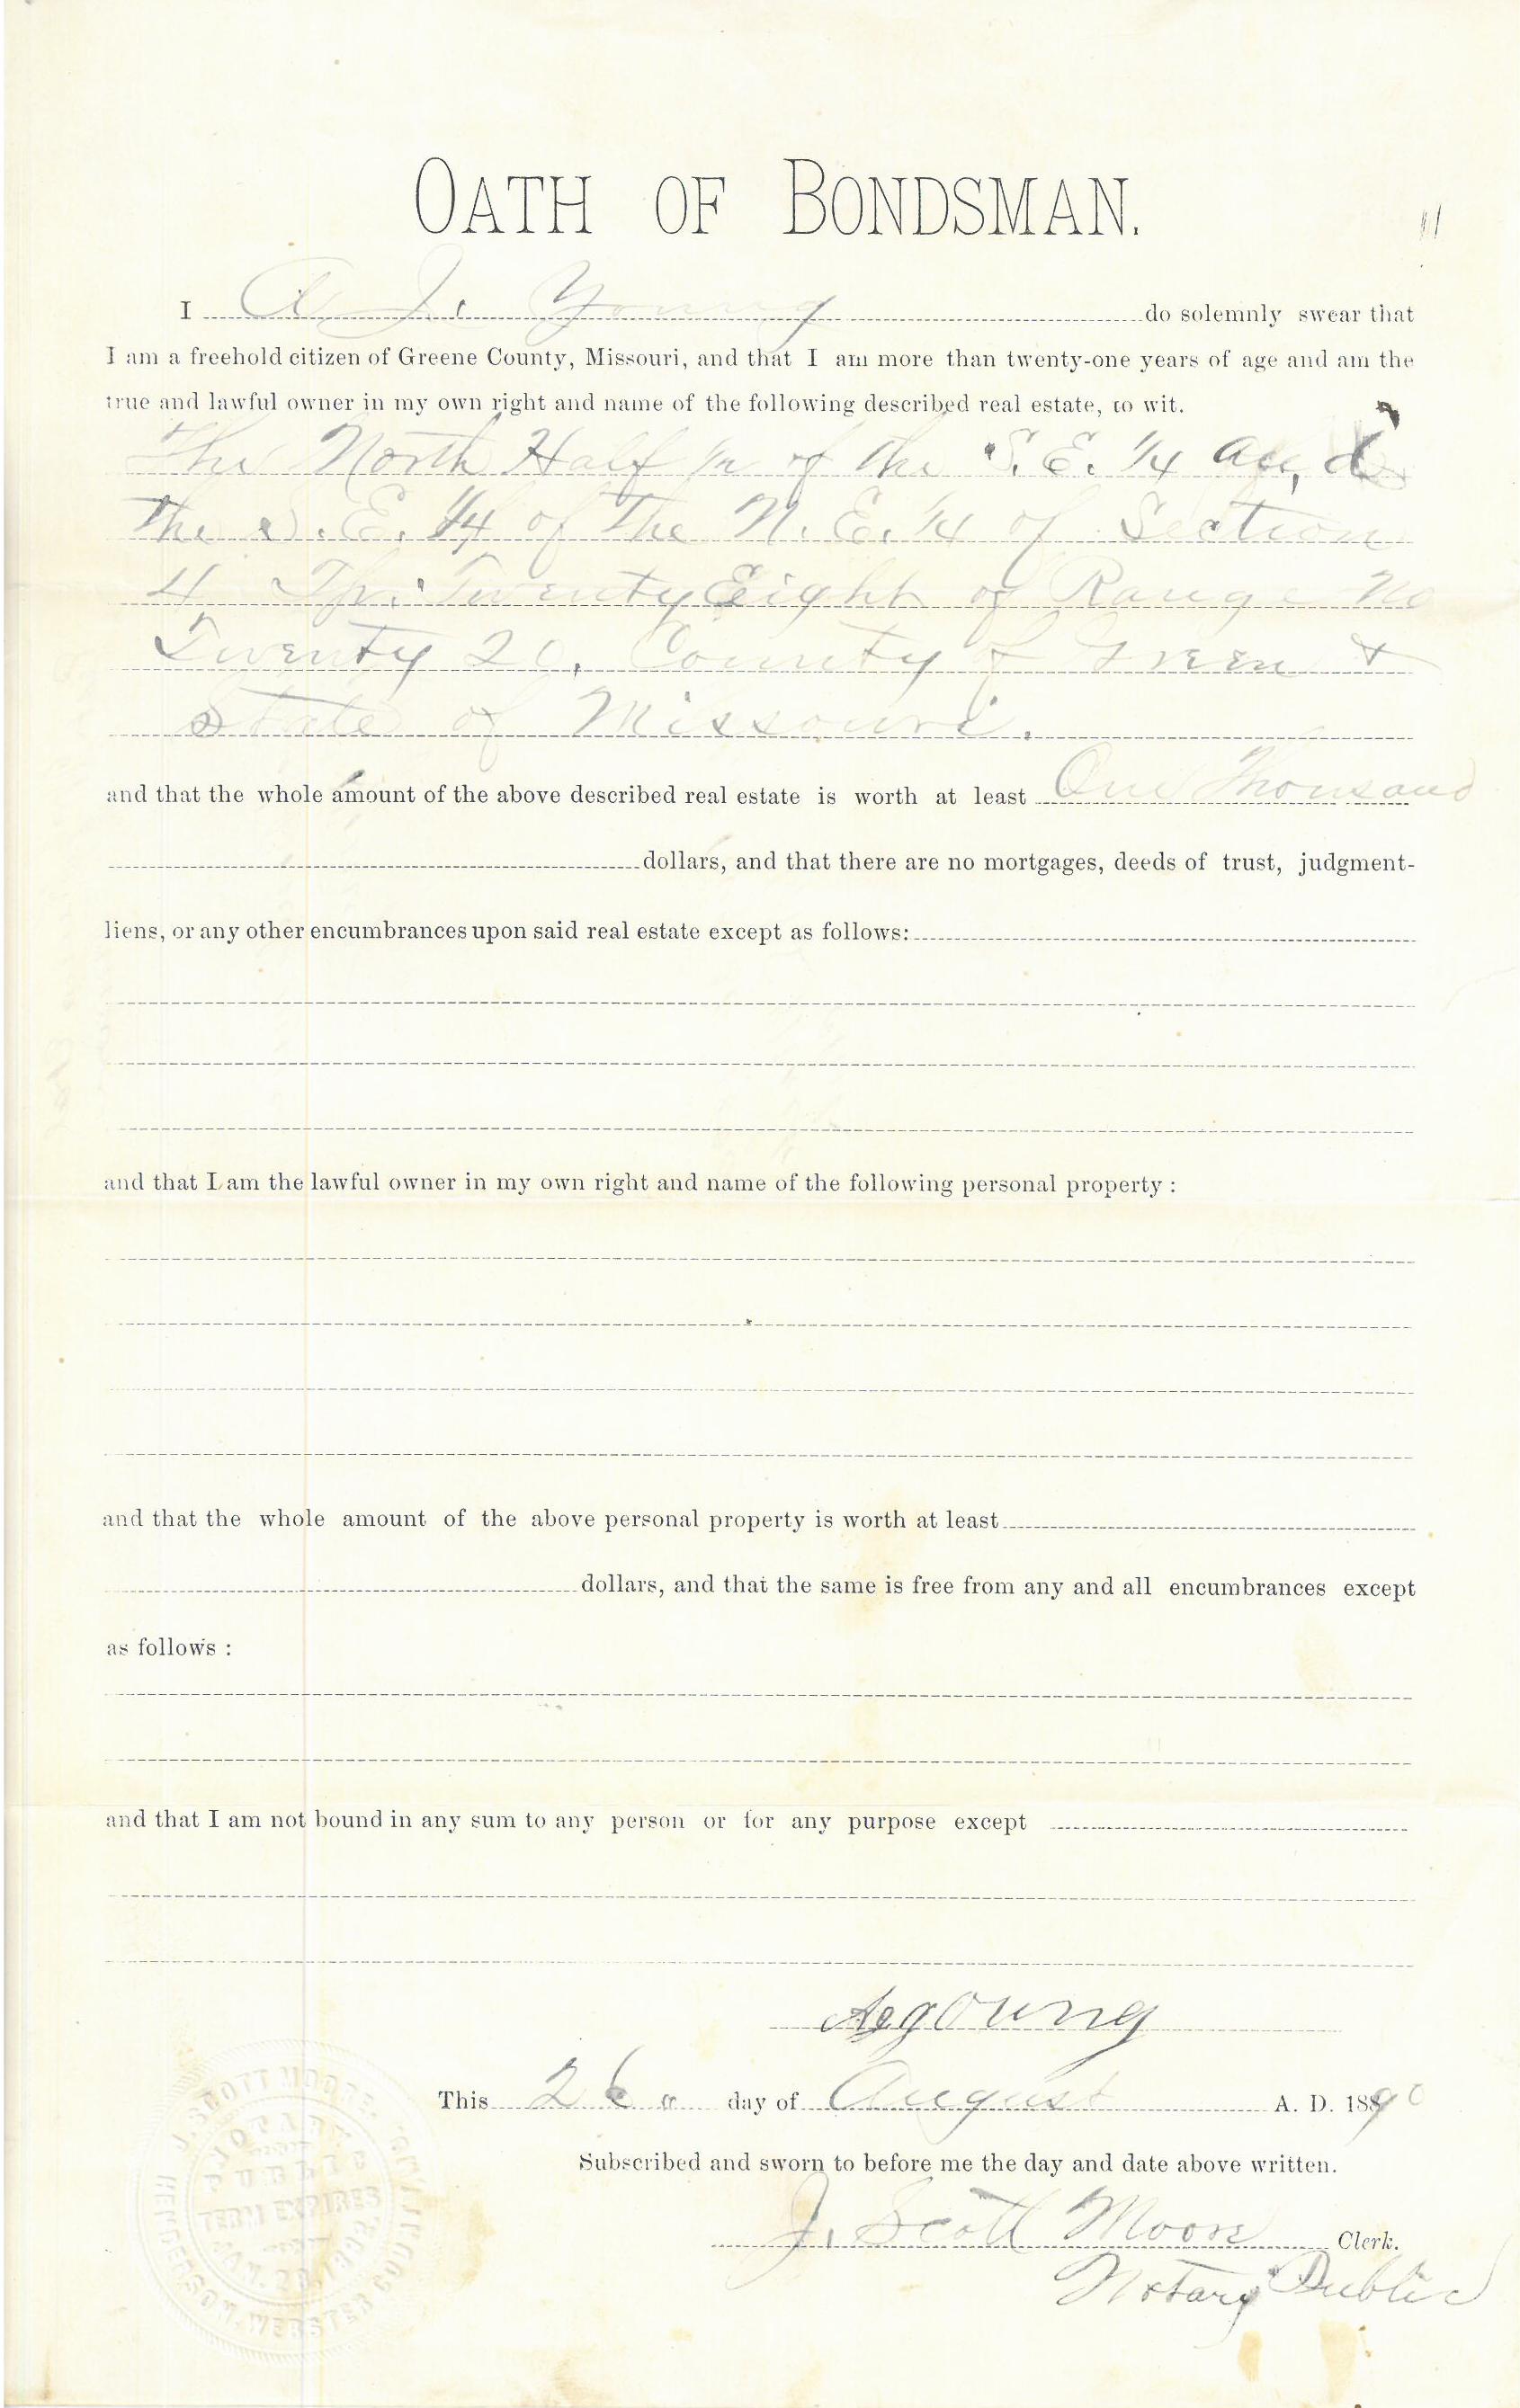 OATH OF BONDSMAN.
I A J. Young do solemnly swear that
I am a freehold citizen of Greene County, Missouri, and that I am more than twenty-one years of age and am the
true and lawful owner in my own right and name of the following described real estate, to wit.
The North Half of the S. E. 1/4 and
the S. E. 1/4 of The N. E. 1/4 of Section
4 Tp. Twenty Eight of Range No
Twenty 20. County of Green &
State of Missouri.
and that the whole amount of the above described real estate is worth at least One Thousand
dollars, and that there are no mortgages, deeds of trust, judgment-
liens, or any other encumbrances upon said real estate except as follows:
and that I am the lawful owner in my own right and name of the following personal property :
and that the whole amount of the above personal property is worth at least
dollars, and that the same is free from any and all encumbrances except
as follows :
and that I am not bound in any sum to any person or for any purpose except
A J Young
This 26 day of August A. D. 1890
Subscribed and sworn to before me the day and date above written.
J. Scott Moore Clerk.
Notary Public
J. SCOTT MOORE.
NOTARY
PUBLIC
TERM EXPIRES
HENDERSON, WEBSTER COUNTY